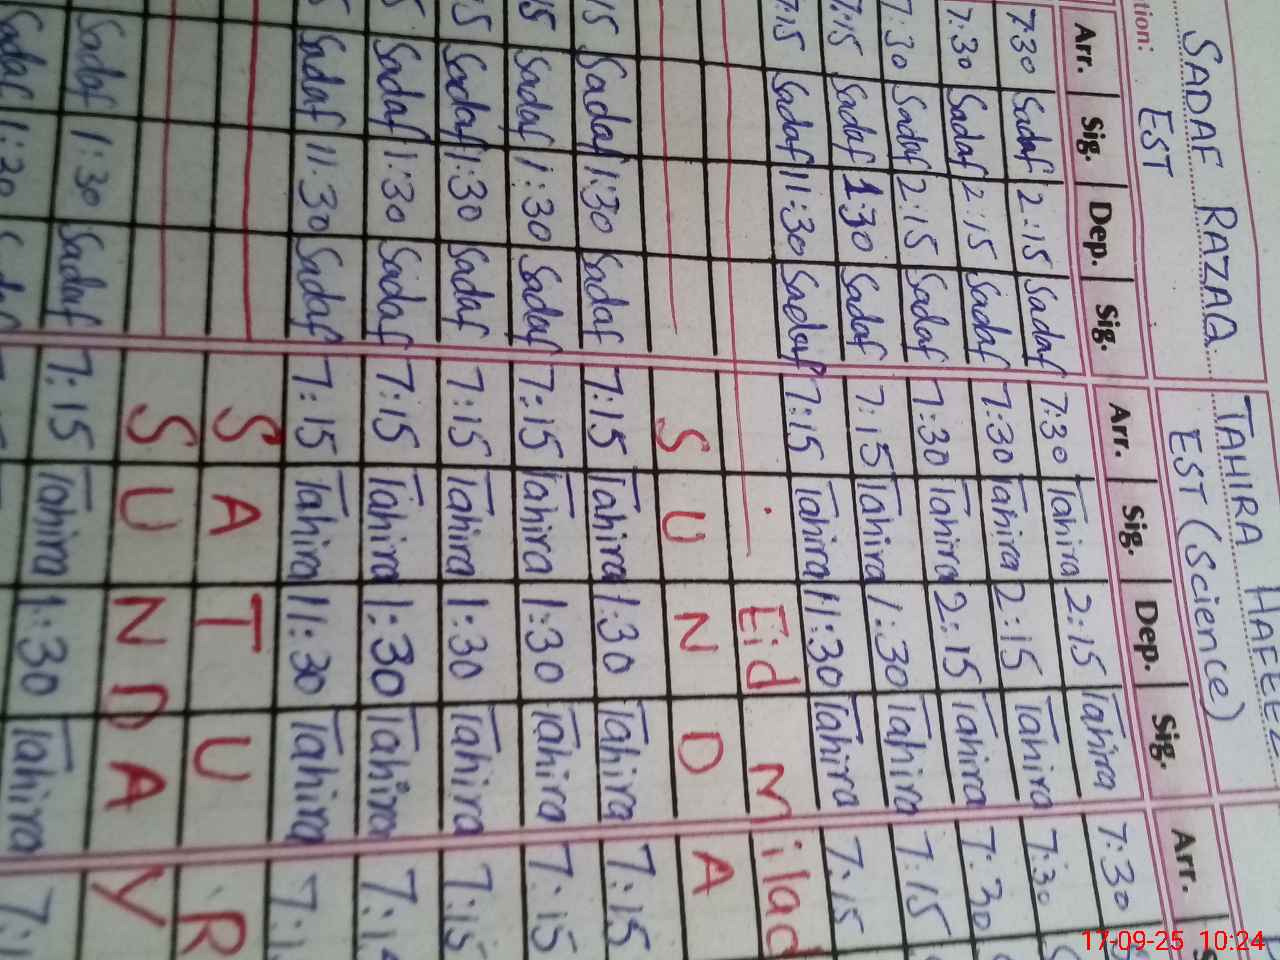 SADAF RAZAQ TAHIRA HAFEEZ
tion: EST EST (Science)
Arr. Sig. Dep. Sig. Arr. Sig. Dep. Sig. Arr.
7:30 Sadaf 2:15 Sadaf 7:30 Tahira 2:15 Tahira 7:30
7:30 Sadaf 2:15 Sadaf 7:30 Tahira 2:15 Tahira 7:30
7:30 Sadaf 2:15 Sadaf 7:30 Tahira 2:15 Tahira 7:30
7:15 Sadaf 1:30 Sadaf 7:15 Tahira 1:30 Tahira 7:15
7:15 Sadaf 11:30 Sadaf 7:15 Tahira 11:30 Tahira 7:15
Eid Milad
SUNDA
15 Sadaf 1:30 Sadaf 7:15 Tahira 1:30 Tahira 7:15
15 Sadaf 1:30 Sadaf 7:15 Tahira 1:30 Tahira 7:15
15 Sadaf 1:30 Sadaf 7:15 Tahira 1:30 Tahira 7:15
5 Sadaf 1:30 Sadaf 7:15 Tahira 1:30 Tahira 7:1
5 Sadaf 11:30 Sadaf 7:15 Tahira 11:30 Tahira 7:1
SATUR
SUNDAY
Sadaf 1:30 Sadaf 7:15 Tahira 1:30 Tahira 7:1
Sadaf 1:30
17-09-25 10:24